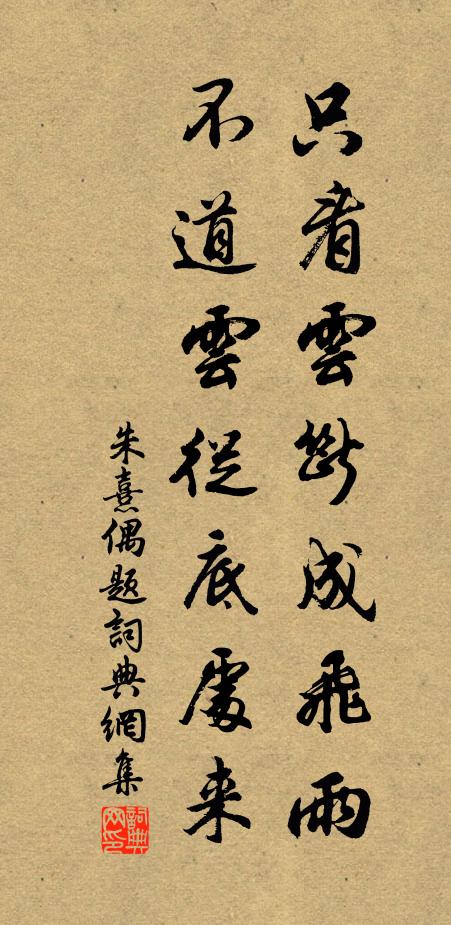 只看雲斷成飛雨
不道雲從底處来
朱熹偶題詞典網集
詞典网印